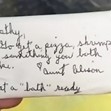 athy,
to get a pizza, shrimp
something you both
Aunt Alison
et a "bath" ready